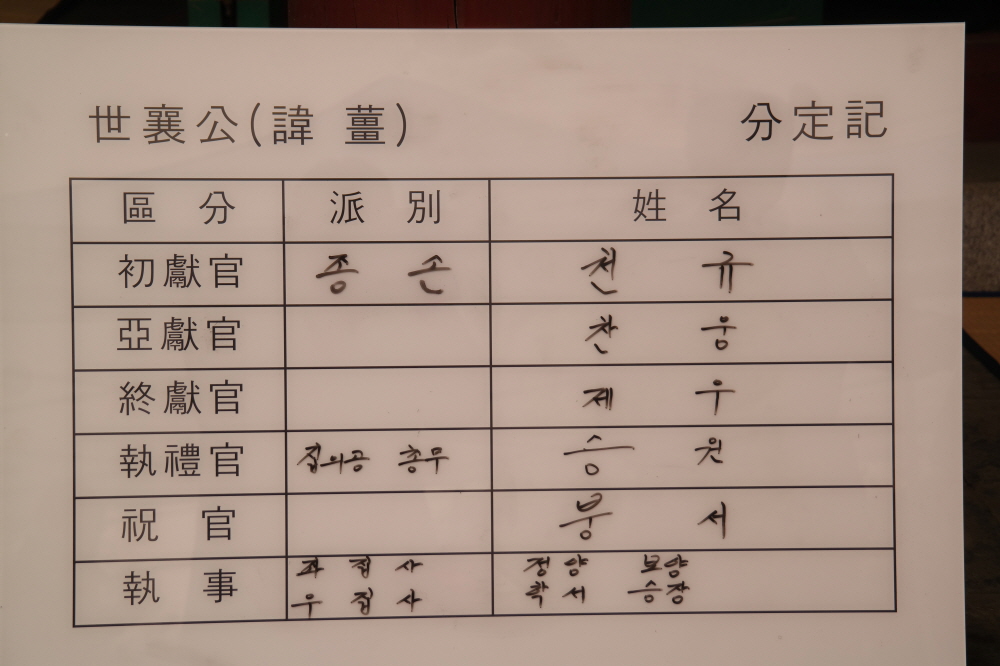 世襄公(諱 薑) 分定記
區 分 派 別 姓 名
初獻官 종 손 천 규
亞獻官 찬 웅
終獻官 제 우
執禮官 집의공 총무 승 원
祝 官 붕 서
執 事 좌 집 사 정 양 보양
우 집 사 학 서 승장